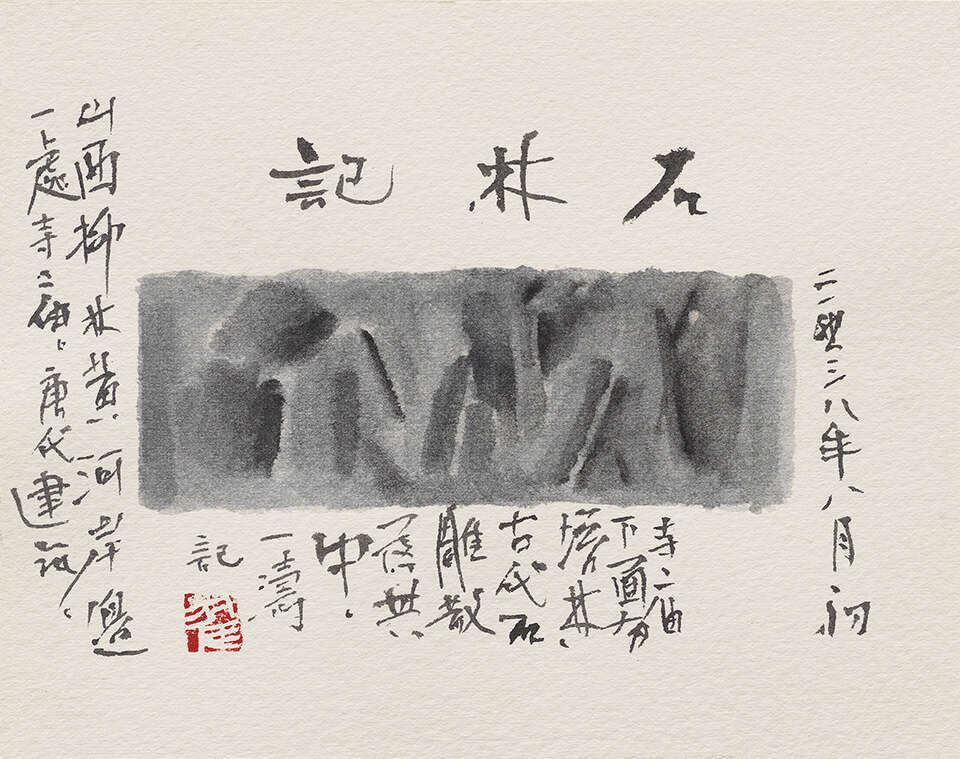 石林記
二零一八年八月初
山西柳林黃河岸邊
一處寺庙、唐代建筑、
寺庙
下面有
塔林、
古代石
雕散
落其
中、
一濤
記